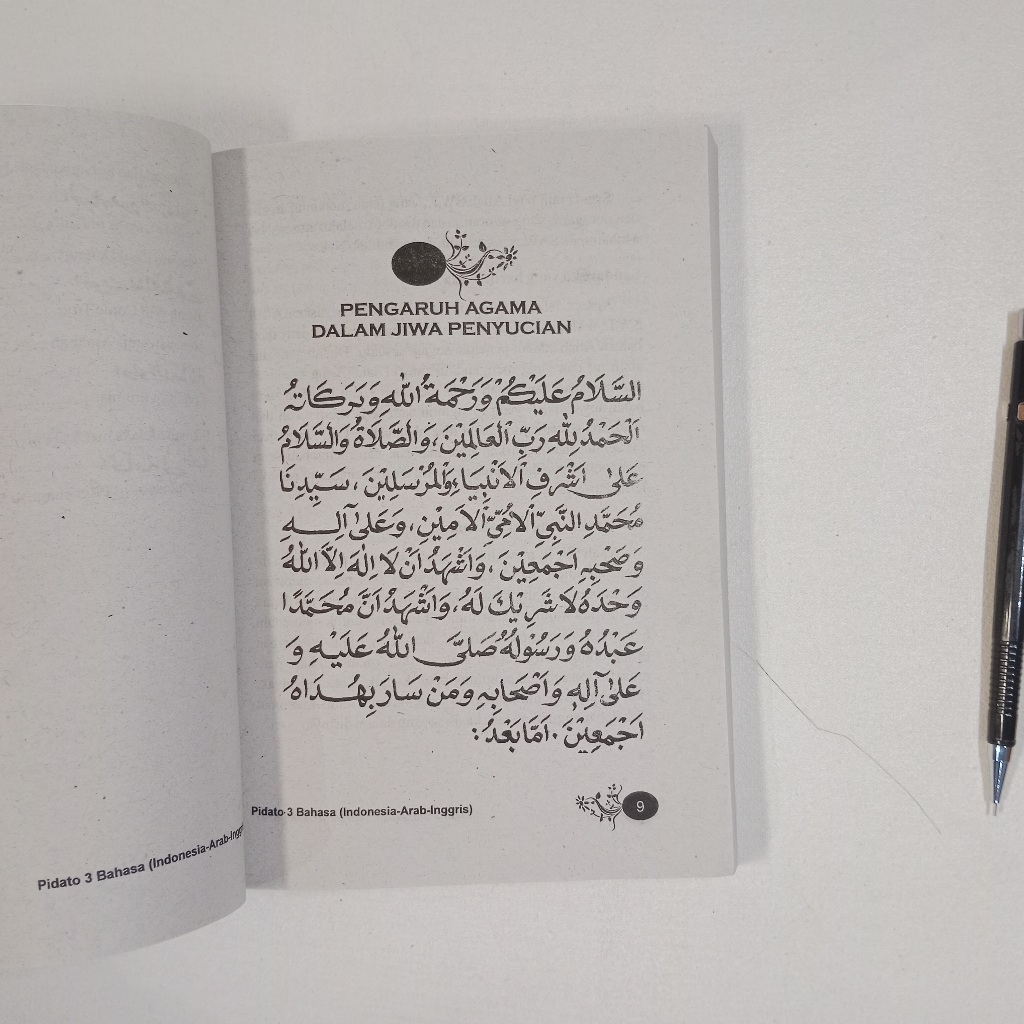 PENGARUH AGAMA
DALAM JIWA PENYUCIAN
السَّلَامُ عَلَيْكُمْ وَرَحْمَةُ اللهِ وَبَرَكَاتُهُ
اَلْحَمْدُ لِلّٰهِ رَبِّ الْعَالَمِيْنَ، وَالصَّلَاةُ وَالسَّلَامُ
عَلىٰ اَشْرَفِ الْاَنْبِيَاءِ وَالْمُرْسَلِيْنَ، سَيِّدِنَا
مُحَمَّدِ النَّبِيِّ الْاُمِّيِّ الْاَمِيْنِ، وَعَلىٰ آلِهِ
وَصَحْبِهِ اَجْمَعِيْنَ، وَاَشْهَدُ اَنْ لَا اِلٰهَ اِلَّا اللهُ
وَحْدَهُ لَا شَرِيْكَ لَهُ، وَاَشْهَدُ اَنَّ مُحَمَّدًا
عَبْدُهُ وَرَسُوْلُهُ صَلَّى اللهُ عَلَيْهِ وَ
عَلىٰ آلِهِ وَاَصْحَابِهِ وَمَنْ سَارَ بِهُدَاهُ
اَجْمَعِيْنَ. اَمَّا بَعْدُ:
Pidato 3 Bahasa (Indonesia-Arab-Inggris) 9
Pidato 3 Bahasa (Indonesia-Arab-Inggr